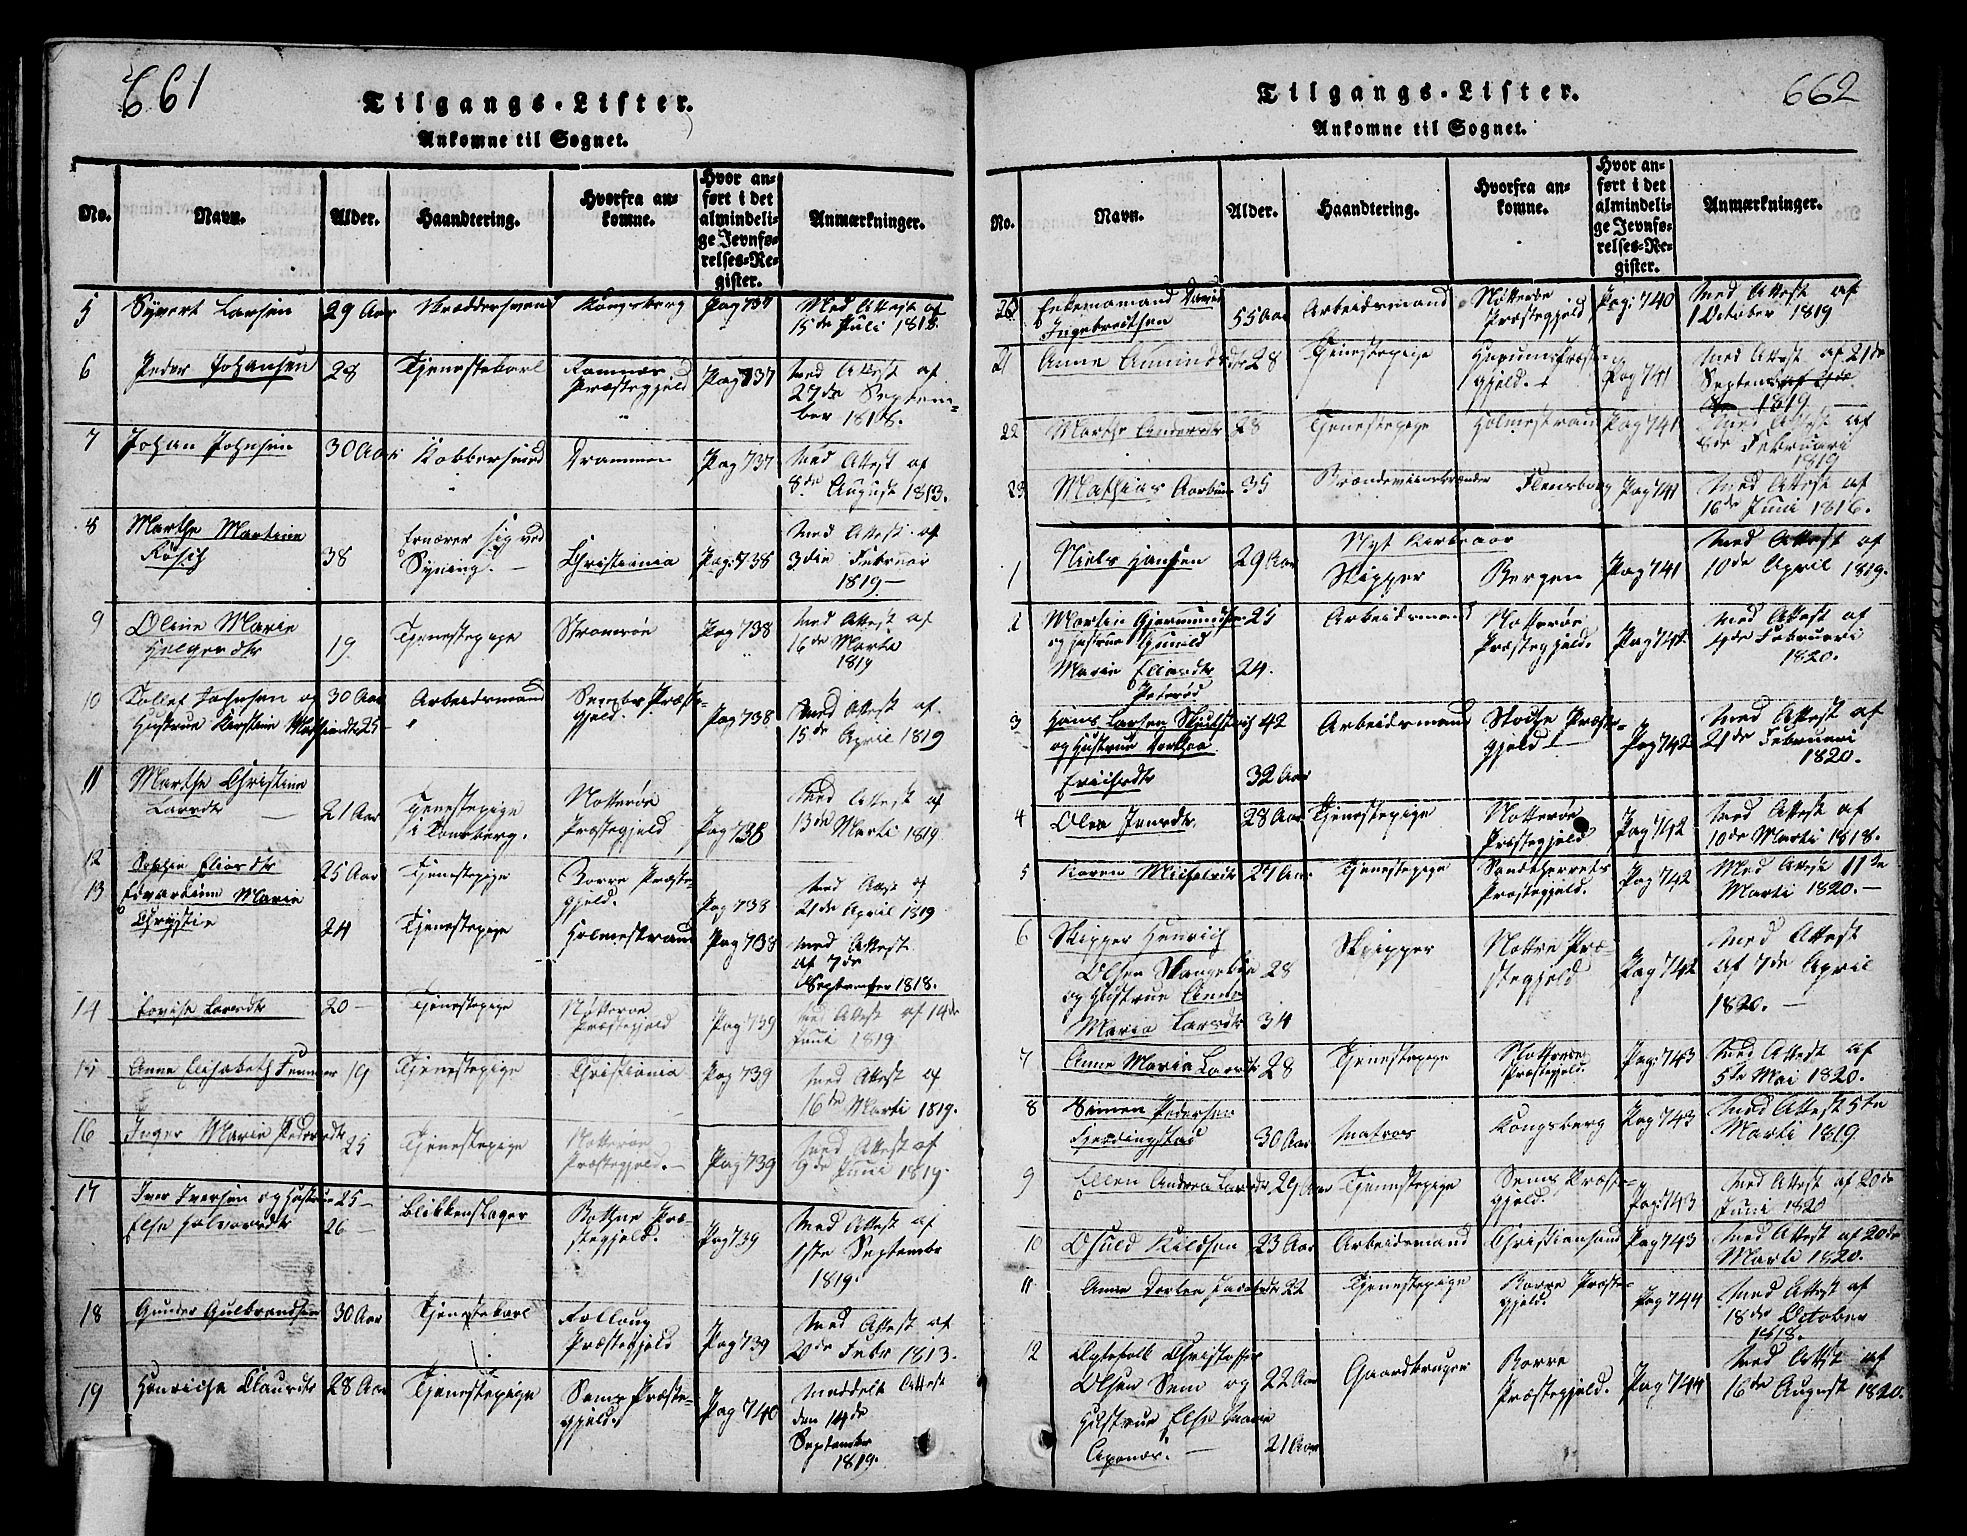 661
Tilgangs-Lister.
Ankomne til Sognet.
No. Navn. Alder. Haandtering. Hvorfra ankomne. Hvor anført i det almindelige Jevnførelses-Register. Anmærkninger.
5 Syvert Larsen 29 Aar Skreddersvend Kongsberg Pag 737 Med Attest af
15de Juli 1818.
6 Peder Johansen 28 Tjenestekarl Ramnæs Præstegjeld Pag 737 Med Attest af
27de September 1818.
7 Johan Johnsen 30 Aar Kobbersmed Drammen Pag 737 Med Attest af
8de August 1813.
8 Marthe Martine 38 Ernærer sig ved Syning. Christiania Pag: 738 Med Attest af
3die Februar
1819
9 Oline Marie
Holgersdtr 19 Tjenestepige Stromsöe Pag 738 Med Attest af
16de Martii
1819
10 Tollef Johnsen og 30 Aar Arbeidsmand Sembs Præstegjeld. Pag 738 Med Attest af
Hustrue Kirstine Mathiasdtr 25 15de April 1819
11 Marthe Christine
Larsdtr 21 Aar Tjenestepige i Tønsberg. Nötteröe Præstegjeld Pag 738 Med Attest af
13de Marti 1819.
12 Sophie Eliasdtr 25 Aar Tjenestepige Borre Præstegjeld. Pag 738 Med Attest af
21de April 1819
13 Edvartine Marie
Christie 24 Tjenestepige Holmestrand Pag 738 Med Attest
af 7de
September 1818.
14 Lovise Larsdtr 20 Tjenestepige Nötteröe Præstegjeld Pag 739 Med Attest af 14de
Juni 1819
15 Anne Elisabeth 19 Tjenestepige Christiania Pag 739 Med Attest af
16de Marti 1819.
16 Inger Marie Pedersdtr 25 Tjenestepige Nötteröe Præstegjeld. Pag 739 Med Attest af
9de Juni 1819.
17 Iver Iversen og Hustrue 25 Blikkenslager Bottne Præstegjeld. Pag 739 Med Attest af
Else Halvorsdtr 26 1ste Septembr
1819.
18 Gunder Gulbrandsen 30 Aar Tjenestekarl Præstegjeld Pag 739 Med Attest af
20de Febr 1813.
19 Henriche Clausdtr 28 Aar Tjenestepige Sems Præstegjeld Pag 740 Meddelt Attest
den 14de
Septembr
1819.
662
Tilgangs-Lister.
Ankomne til Sognet.
No. Navn. Alder. Haandtering. Hvorfra ankomne. Hvor anført i det almindelige Jevnførelses-Register. Anmærkninger.
20 Enkemand David
Ingebretsen 55 Aar Arbeidsmand Nötteröe Præstegjeld Pag: 740 Med Attest af
1 October 1819
21 Anne Amundsdtr 28 Tjenestepige Hurums Præstegjeld. Pag 741 Med Attest af 21de
Septemb
1819
22 Marthe Andersdtr 28 Tjenestepige Holmestrand Pag 741 Med Attest af
8de Februari
1819
23 Mathias Aarbue 35 Brændeviinsbrænder Flensborg Pag 741 Med Attest af
16de Juni 1816.
Nyt Kirkeaar
1 Niels Hansen 29 Aar Skipper Bergen Pag 741 Med Attest af
10de April 1819.
2 Morten Gjermundsen 25 Arbeidsmand Nötteröe Præstegjeld. Pag 742 Med Attest af
og Hustrue Gunild
Marie Eliasdtr 24. Februari
1820.
3 Hans Larsen 42 Arbeidsmand Stokke Præstegjeld Pag 742 Med Attest af
og Hustrue Dorthea 21de Februari
Erichsdtr 32 Aar 1820.
4 Olea Jensdtr 28 Aar Tjenestepige Nötteröe Præstegjeld Pag 742 Med Attest af
10de Marti 1818.
5 Karen Michelsdtr 27 Aar Tjenestepige Sandeherrets Præstegjeld. Pag 742 Med Attest 11te
Marti 1820.
6 Skipper Henrich
Olsen 28 Skipper Præstegjeld Pag 742 Med Attest
og Hustrue Anne af 7de April
Maria Larsdtr 34 1820.
7 Anne Maria Larsdtr 28 Tjenestepige Nötteröe Præstegjeld. Pag: 743 Med Attest af
5te Mai 1820.
8 Simen Pedersen
Fjerdingstad 30 Aar Matros Kongsberg Pag 743 Med Attest 5te
Marti 1819
9 Ellen Andrea Larsdtr 29 Aar Tjenestepige Sems Præstegjeld. Pag: 743 Med Attest af 20de
Juni 1820
10 Osuld Nilssen 23 Aar Arbeidsmand Christiansand Pag 743 Med Attest af 20de
Marti 1820.
11 Anne Dorthea Jacobsdtr 22 Tjenestepige Borre Præstegjeld. Pag 744 Med Attest af
18de October
1818.
12 Ægtefolk Christoffer
Olsen Sem og 22 Aar Gaardbruger Borre Præstegjeld. Pag 744 Med Attest af
Hustrue Else Marie 16de August 1820.
21 Aar